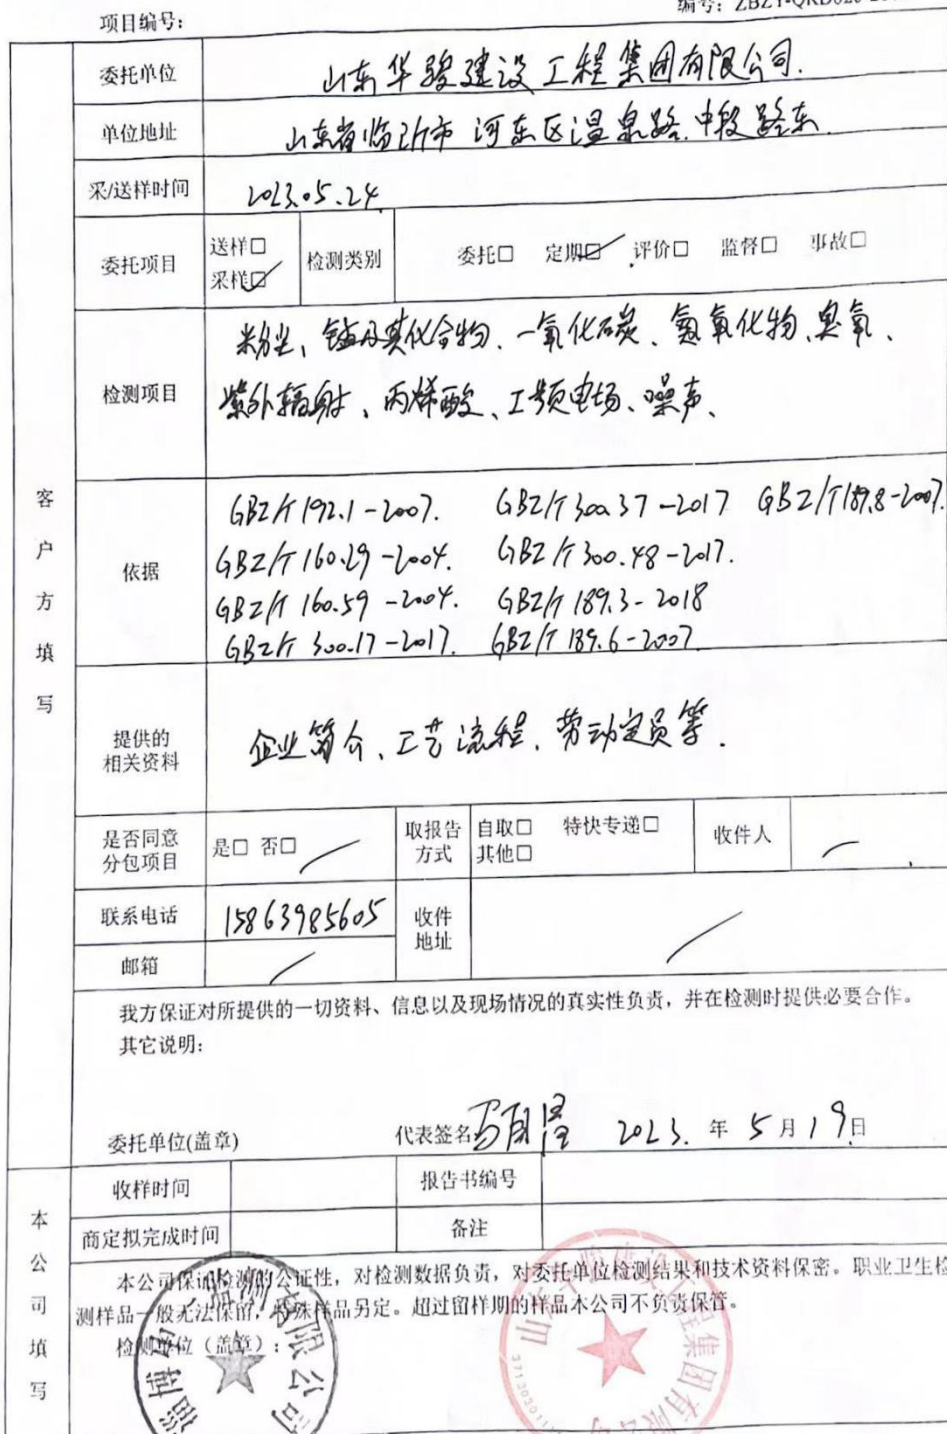 项目编号:
委托单位 山东华骏建设工程集团有限公司.
单位地址 山东省临沂市河东区温泉路中段路东
采/送样时间 2023.05.24
委托项目 送样□ 采样☑ 检测类别 委托□ 定期☑ 评价□ 监督□ 事故□
检测项目 粉尘、锰及其化合物、一氧化碳、氮氧化物、臭氧、
紫外辐射、丙烯酸、工频电场、噪声、
客户方填写
依据 GBZ/T 192.1-2007. GBZ/T 300.37-2017 GBZ/T 189.8-2007.
GBZ/T 160.29-2004. GBZ/T 300.48-2017.
GBZ/T 160.59-2004. GBZ/T 189.3-2018
GBZ/T 300.17-2017. GBZ/T 189.6-2007
提供的相关资料 企业简介、工艺流程、劳动定员等.
是否同意分包项目 是□ 否□ / 取报告方式 自取□ 特快专递□ 其他□ 收件人 /
联系电话 15863985605 收件地址 /
邮箱 /
我方保证对所提供的一切资料、信息以及现场情况的真实性负责，并在检测时提供必要合作。
其它说明:
委托单位(盖章) 代表签名 2023. 年 5 月 19 日
本公司填写
收样时间 报告书编号
商定拟完成时间 备注
本公司保证检测的公证性，对检测数据负责，对委托单位检测结果和技术资料保密。职业卫生检
测样品一般无法保留，特殊样品另定。超过留样期的样品本公司不负责保管。
检测单位（盖章）: